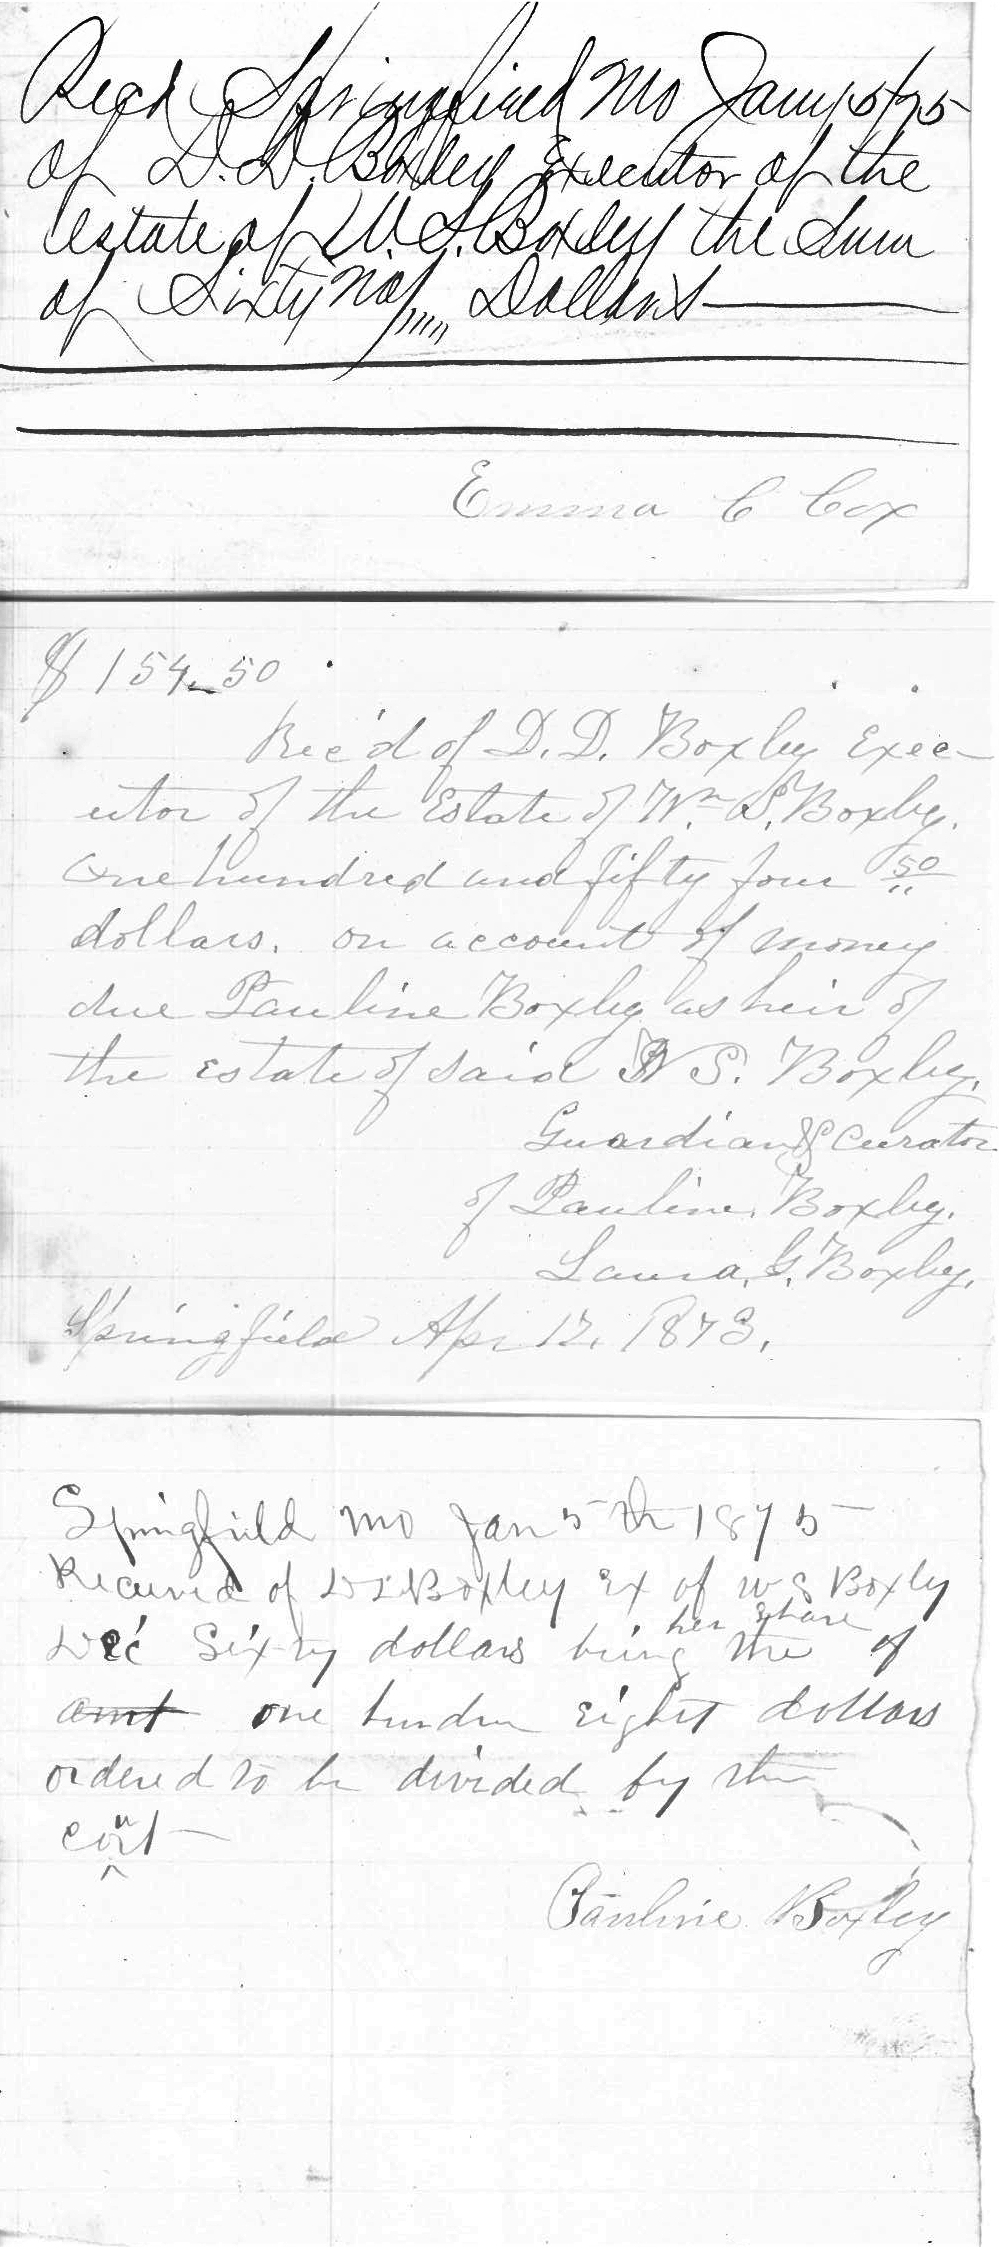 Recd Springfield Mo Jany 5/75
of D.D. Boxley Executor of the
estate of W.S. Boxley the Sum
of Sixty no/,,,, Dollars
Emma C Cox
$154.50
Rec'd of D.D. Boxley Exec-
utor of the Estate of Wm S. Boxley.
One hundred and fifty four 50
dollars. on account of money
due Pauline Boxley as heir of
the estate of said W S. Boxley.
Guardian & Curator
of Pauline Boxley.
Laura. G. Boxley.
Springfield Apr 12. 1873.
Springfield Mo Jan 5th 1875
Received of D D Boxley Ex of W S Boxley
Dec' Sixty dollars being the her share of
amt one hundre eight dollars
ordered to be divided by the
court
Pauline Boxley